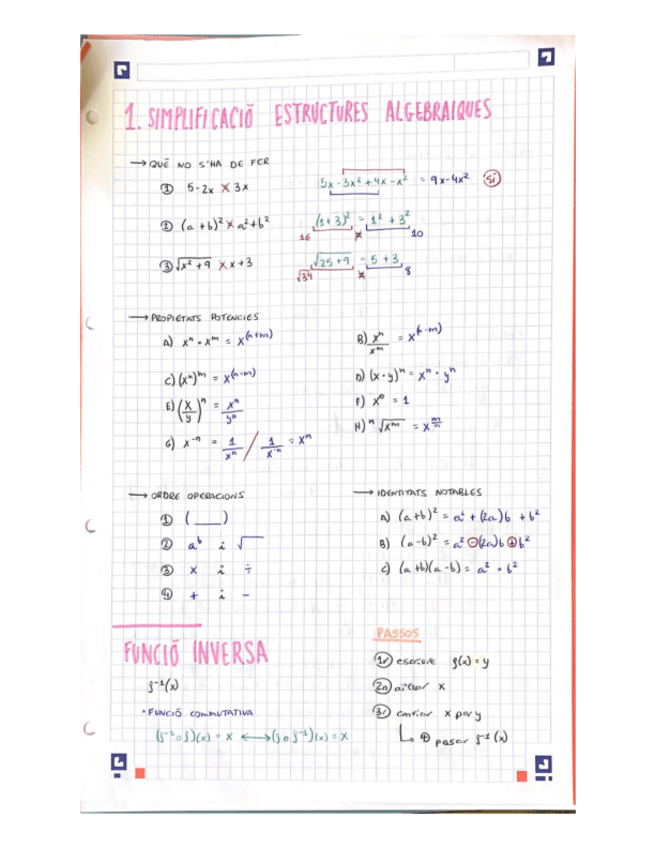 1. SIMPLIFICACIÓ ESTRUCTURES ALGEBRAIQUES
→ QUÈ NO S'HA DE FER
① 5-2x ✗ 3x
5x-3x²+4x-x² = 9x-4x² Sí
② (a+b)² ✗ a²+b²
(1+3)² = 1²+3²
16 ✗ 10
③ √x²+9 ✗ x+3
√25+9 = 5+3
√34 ✗ 8
→ PROPIETATS POTENCIES
A) xⁿ · xᵐ = x^(n+m)
B) xⁿ/xᵐ = x^(n-m)
C) (xⁿ)ᵐ = x^(n·m)
D) (x·y)ⁿ = xⁿ · yⁿ
E) (x/y)ⁿ = xⁿ/yⁿ
F) x⁰ = 1
G) x⁻ⁿ = 1/xⁿ / 1/x⁻ⁿ = xⁿ
H) ⁿ√xᵐ = x^(m/n)
→ ORDRE OPERACIONS
① (___)
② aᵇ i √
③ x i ÷
④ + i -
→ IDENTITATS NOTABLES
A) (a+b)² = a² + (2a)b + b²
B) (a-b)² = a² ⊖ (2a)b ⊕ b²
C) (a+b)(a-b) = a² - b²
FUNCIÓ INVERSA
f⁻¹(x)
• FUNCIÓ COMMUTATIVA
(f⁻¹∘f)(x) = x ↔ (f∘f⁻¹)(x) = x
PASSOS
1r escriure f(x) = y
2n aïllar x
3r canviar x per y
↳ ④ posar f⁻¹(x)